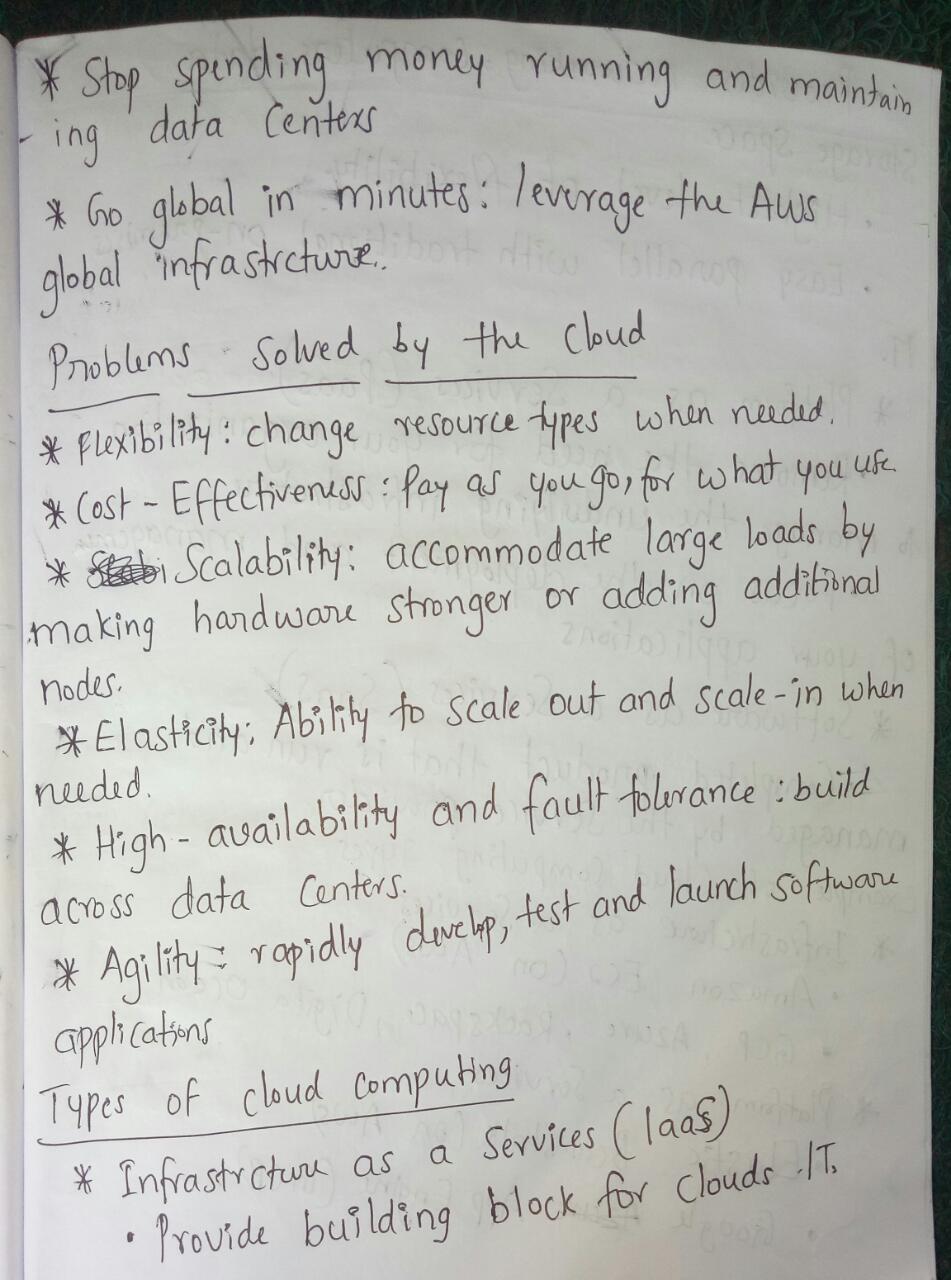 * Stop spending money running and maintain
- ing data Centers
* Go global in minutes: leverage the AWS
global infrastrcture..
Problems Solved by the Cloud
* Flexibility: change resource types when needed.
* Cost - Effectiveness: Pay as you go, for what you use
* Scalability: accommodate large loads by
making hardware stronger or adding additional
nodes.
* Elasticity: Ability to scale out and scale-in when
needed.
* High - availability and fault tolerance: build
across data Centers.
* Agility: rapidly develop, test and launch software
applications
Types of cloud Computing
* Infrastrcture as a Services (IaaS)
• Provide building block for clouds IT.